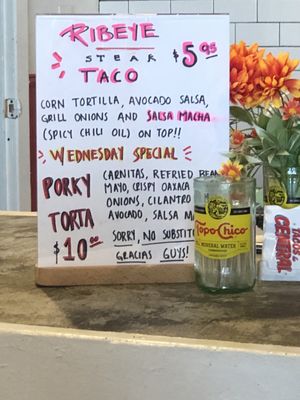 RIBEYE
STEAK $5.95
TACO
CORN TORTILLA, AVOCADO SALSA,
GRILL ONIONS AND SALSA MACHA
(SPICY CHILI OIL) ON TOP!!
WEDNESDAY SPECIAL
PORKY
TORTA
$10.00
CARNITAS, REFRIED
MAYO, CRISPY OAXACA
ONIONS, CILANTRO
AVOCADO, SALSA
SORRY, NO
GRACIAS GUYS!
Topo Chico
MINERAL WATER
TACOS
CENTRAL